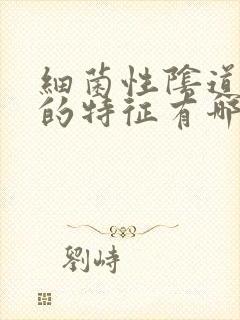 細菌性陰道
的特征有哪
劉峙